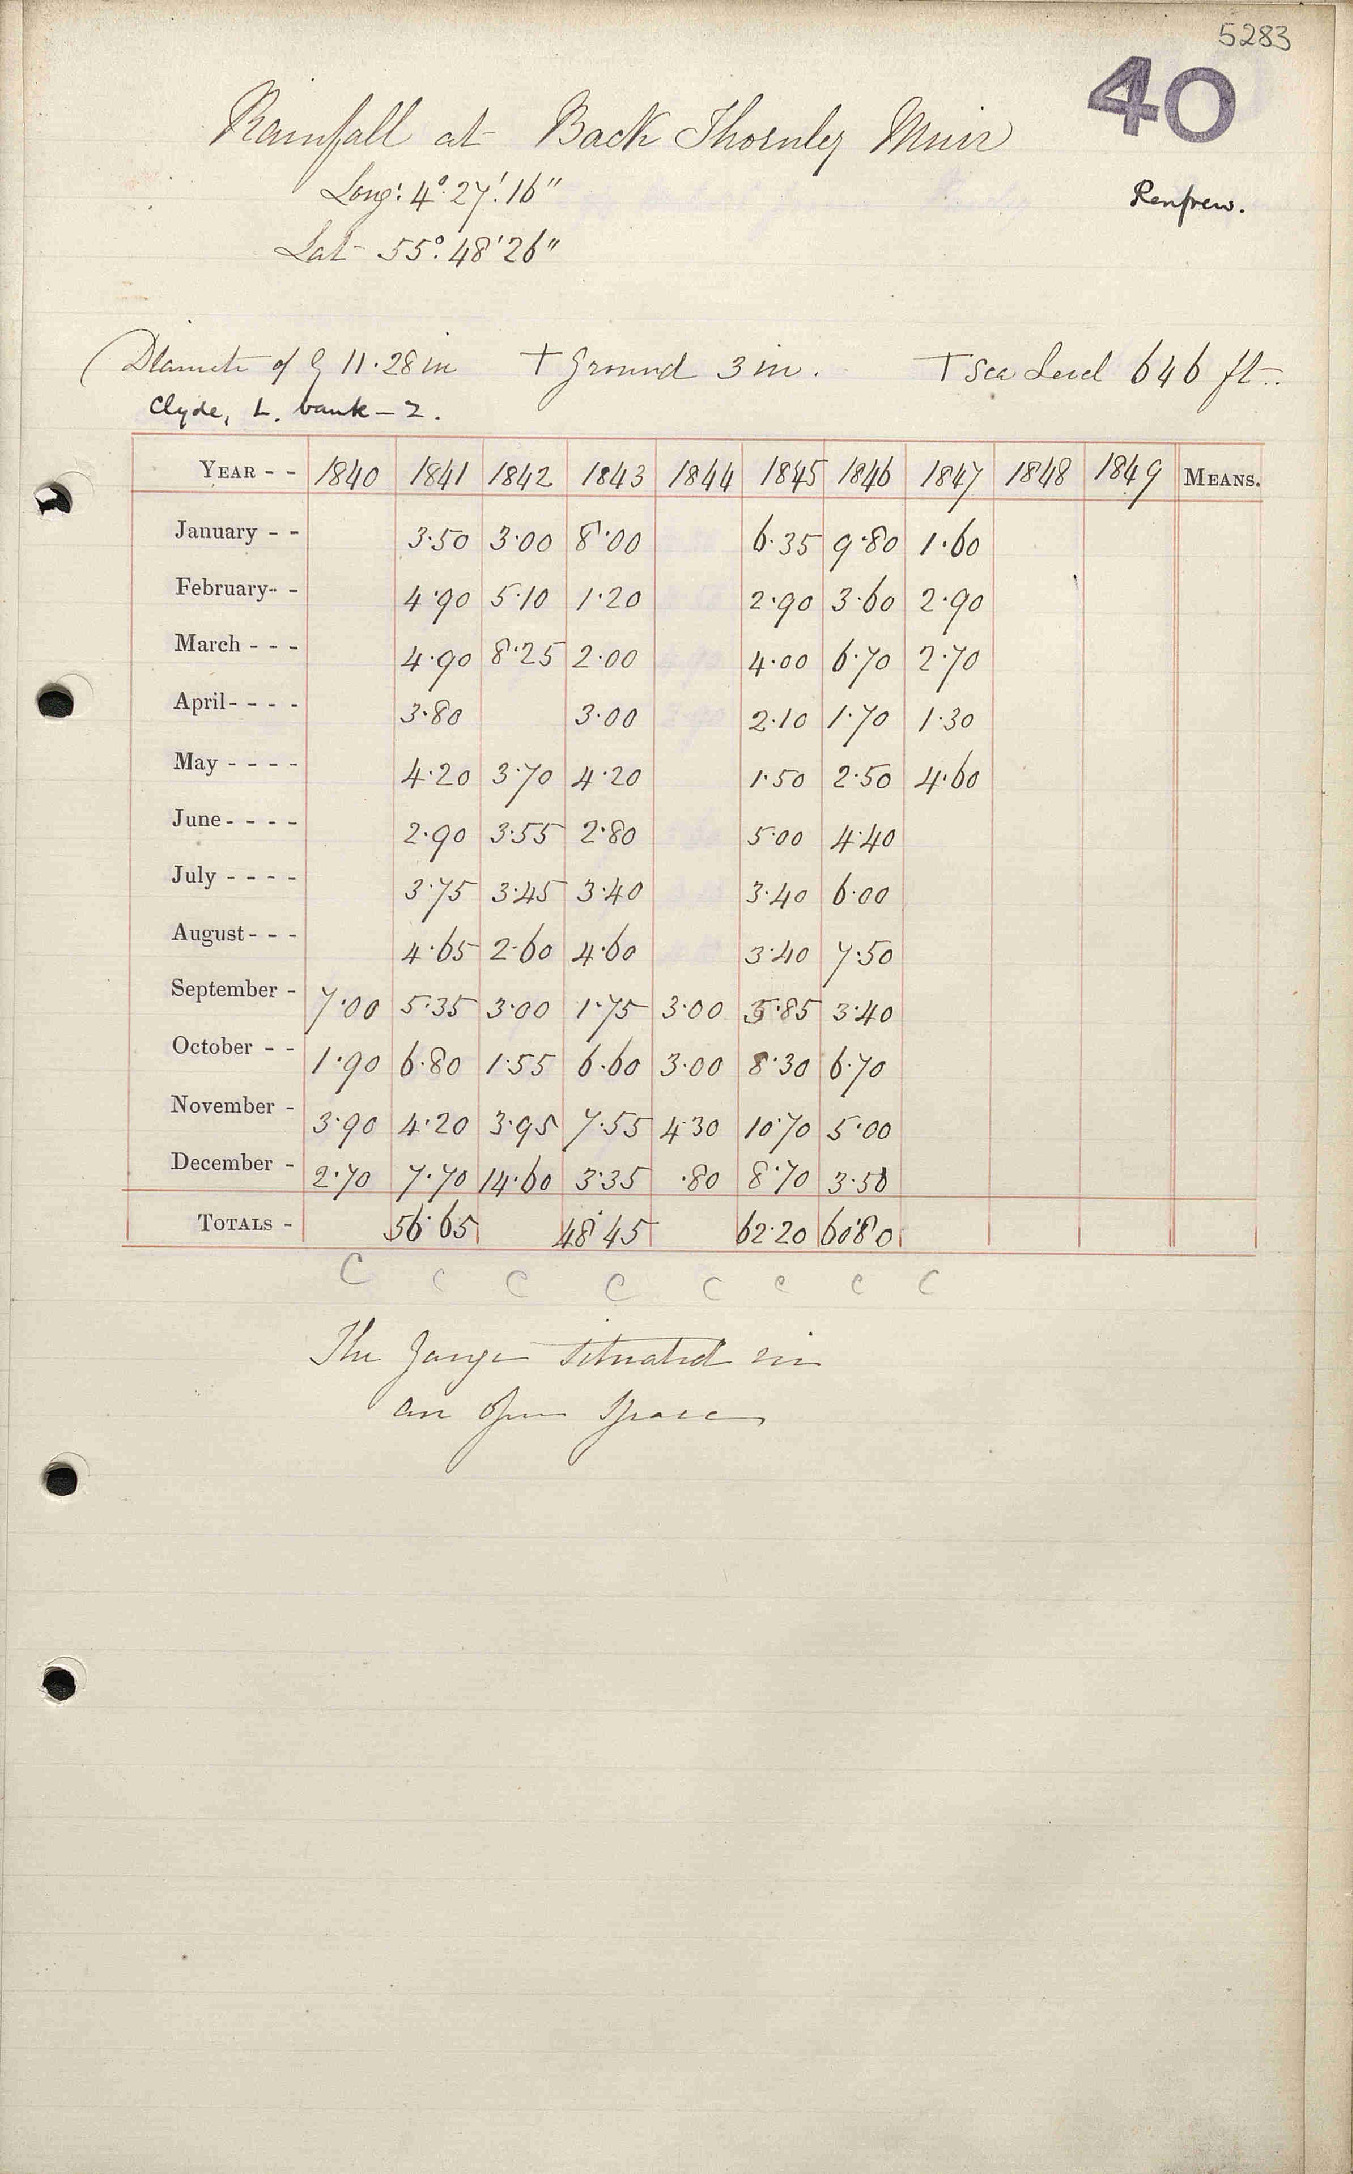 5283
40
Rainfall at Back Thornley Muir
Renfrew.
Long: 4° 27' 16"
Lat 55° 48' 26"
Diameter of G 11.28 in † Ground 3 in. † Sea Level 646 ft.
Clyde, L. bank – 2.
YEAR - - 1840 1841 1842 1843 1844 1845 1846 1847 1848 1849 MEANS.
January - - 3.50 3.00 8.00 6.35 9.80 1.60
February - - 4.90 5.10 1.20 2.90 3.60 2.90
March - - - 4.90 8.25 2.00 4.00 6.70 2.70
April - - - - 3.80 3.00 2.10 1.70 1.30
May - - - - 4.20 3.70 4.20 1.50 2.50 4.60
June - - - - 2.90 3.55 2.80 5.00 4.40
July - - - - 3.75 3.45 3.40 3.40 6.00
August - - - 4.65 2.60 4.60 3.40 7.50
September - 7.00 5.35 3.00 1.75 3.00 5.85 3.40
October - - 1.90 6.80 1.55 6.60 3.00 8.30 6.70
November - 3.90 4.20 3.95 7.55 4.30 10.70 5.00
December - 2.70 7.70 14.60 3.35 .80 8.70 3.50
TOTALS - 56.65 48.45 62.20 60.80
C C C C C C C C
The Gauge situated in
an open space